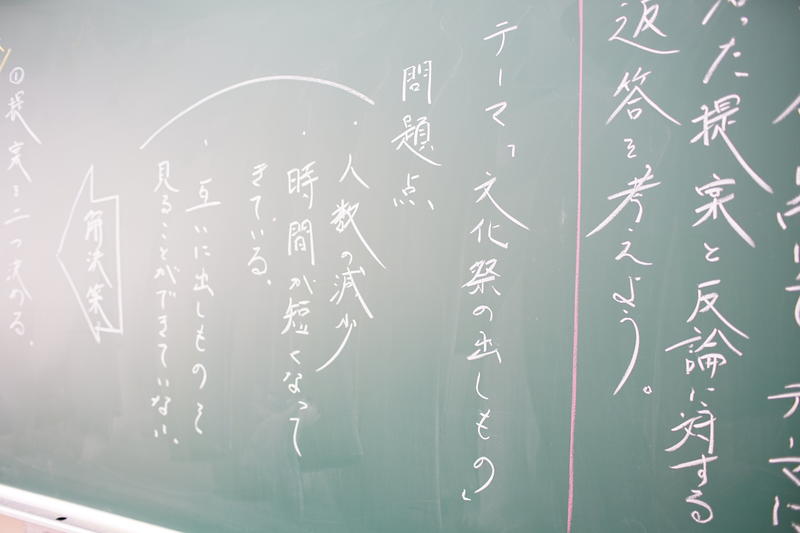 テーマに
った提案と反論に対する
返答を考えよう。
テーマ「文化祭の出しもの」
問題点
・人数の減少
・時間が短くなって
きている。
・互いに出しものを
見ることができていない。
解決策
①提案を二つ決める。